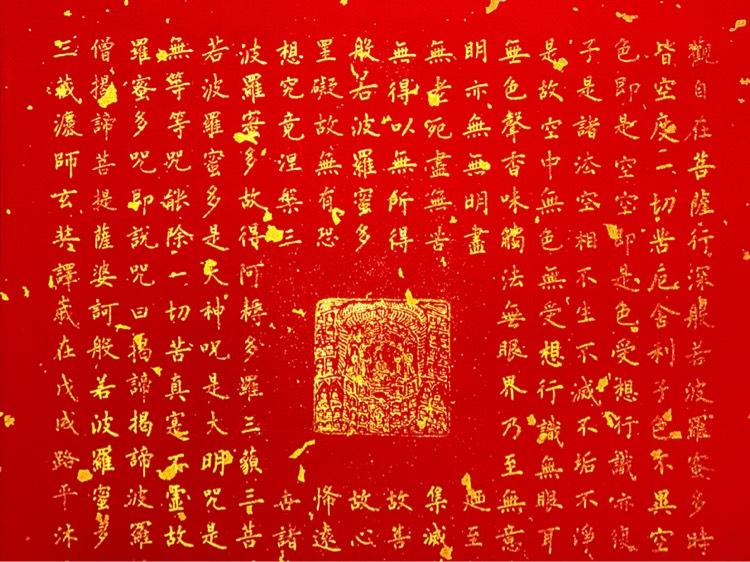 觀自在菩薩行深般若波羅蜜多時
皆空度一切苦厄舍利子色不異空
色即是空空即是色受想行識亦復
子是諸法空相不生不滅不垢不淨
是故空中無色無受想行識無眼耳
無色聲香味觸法無眼界乃至無意
明亦無無明盡廼至
無老死盡無苦集滅
無得以無所得故菩
般若波羅蜜多故心
罣礙故無有恐怖遠
想究竟涅槃三世諸
波羅蜜多故得阿耨多羅三藐三菩
若波羅蜜多是大神咒是大明咒是
無等等咒能除一切苦真實不虛故
羅蜜多咒即說咒曰揭諦揭諦波羅
僧揭諦菩提薩婆訶般若波羅蜜多
三藏灋師玄奘譯歲在戊戌路平沐